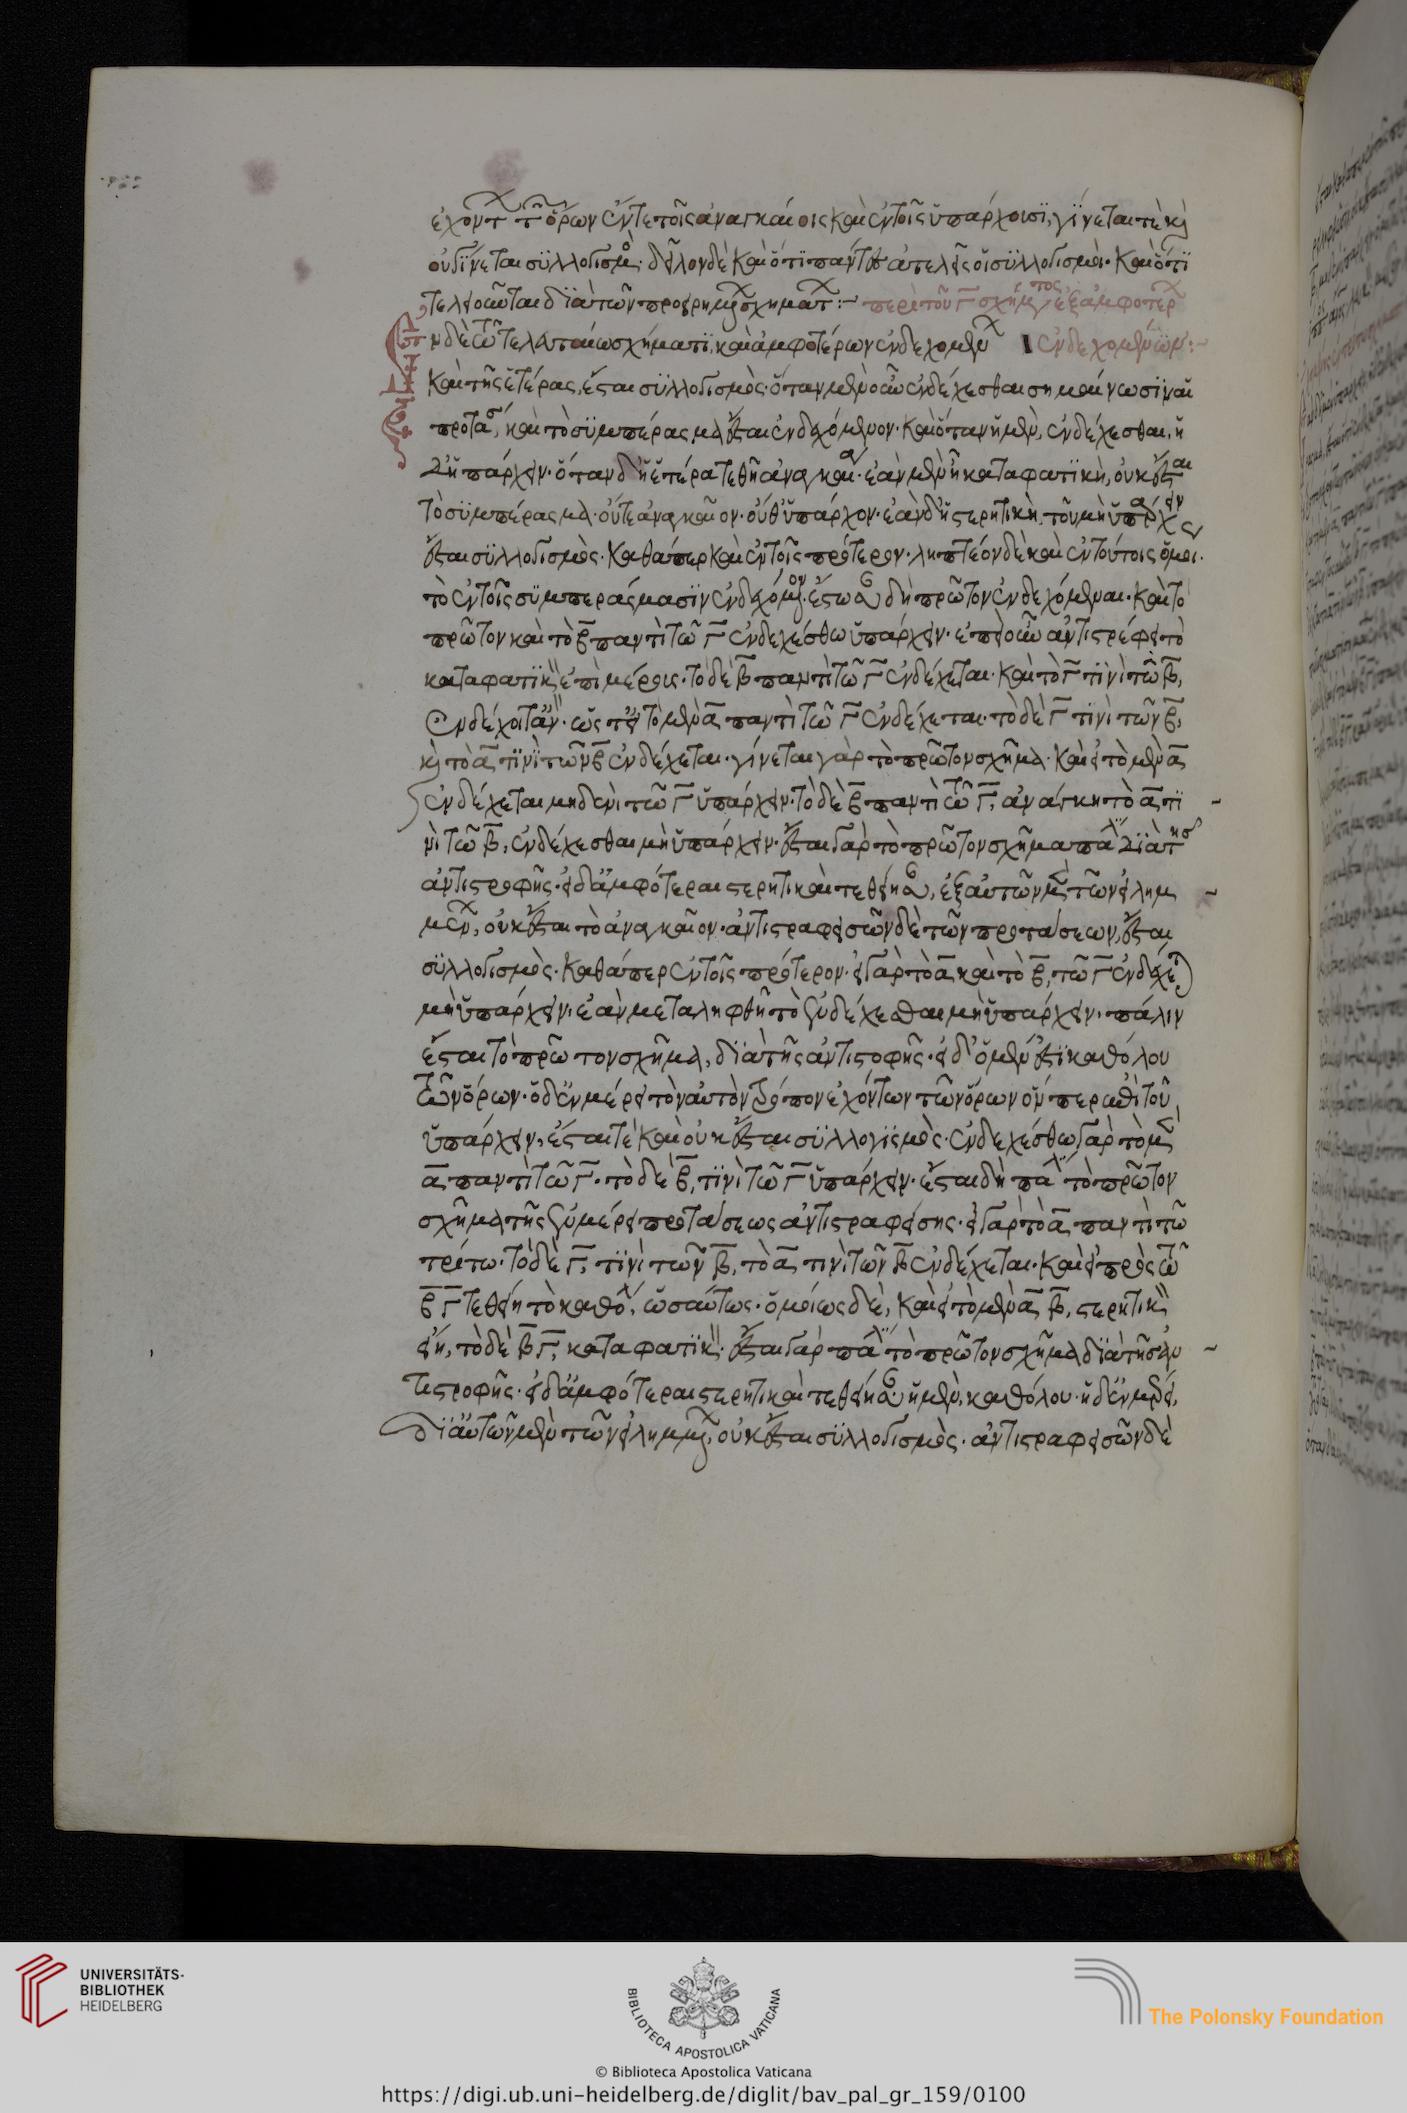 ἐχόντων τῶν ὅρων ἔν τε τοῖς ἀναγκαίοις καὶ ἐν τοῖς ὑπάρχουσι, γίνεται τὲ καὶ
οὐ γίνεται συλλογισμός. δῆλον δὲ καὶ ὅτι πάντες ἀτελεῖς οἱ συλλογισμοί. καὶ ὅτι
τελειοῦνται διὰ τῶν προειρημένων σχημάτων :- περὶ τοῦ Γ σχήματος ἐξ ἀμφοτέρων
Ἐν δὲ τῶ τελευταίω σχήματι, καὶ ἀμφοτέρων ἐνδεχομένων ἐνδεχομένων :-
καὶ τῆς ἑτέρας, ἔσται συλλογισμὸς. ὅταν μὲν οὖν ἐνδέχεσθαι σημαίνωσιν αἱ
προτάσεις, καὶ τὸ συμπέρασμα ἔσται ἐνδεχόμενον. καὶ ὅταν ἡ μὲν, ἐνδέχεσθαι, ἡ
δ' ὑπάρχειν. ὅταν δ' ἡ ἑτέρα τεθῆ ἀναγκαία. ἐὰν μὲν ἦ καταφατικὴ, οὐκ ἔσται
τὸ συμπέρασμα. οὔτε ἀναγκαῖον. οὔθ' ὑπάρχον. ἐὰν δ' ἦ στερητικὴ, τοῦ μὴ ὑπάρχειν
ἔσται συλλογισμὸς. καθάπερ καὶ ἐν τοῖς πρότερον. ληπτέον δὲ καὶ ἐν τούτοις ὁμοί.
τὸ ἐν τοῖς συμπεράσμασιν ἐνδεχόμενον. ἔστωσαν δὴ πρῶτον ἐνδεχόμεναι. καὶ τὸ
πρῶτον καὶ τὸ Β παντὶ τῶ Γ ἐνδεχέσθω ὑπάρχειν. ἐπεὶ οὖν ἀντιστρέφει τὸ
καταφατικὸν ἐπὶ μέρους. τὸ δὲ Β παντὶ τῶ Γ ἐνδέχεται. καὶ τὸ Γ τινὶ τῶ Β,
ἐνδέχοιτ' ἄν. ὥστ' εἰ τὸ μὲν Α παντὶ τῶ Γ ἐνδέχεται. τὸ δὲ Γ τινὶ τῶν Β,
καὶ τὸ Α τινὶ τῶν Β ἐνδέχεται. γίνεται γὰρ τὸ πρῶτον σχῆμα. καὶ εἰ τὸ μὲν Α
ἐνδέχεται μηδενὶ τῶ Γ ὑπάρχειν. τὸ δὲ Β παντὶ τῶ Γ, ἀνάγκη τὸ Α τι
νὶ τῶ Β, ἐνδέχεσθαι μὴ ὑπάρχειν. ἔσται γὰρ τὸ πρῶτον σχῆμα πάλιν διὰ τῆς
ἀντιστροφῆς. εἰ δ' ἀμφότεραι στερητικαὶ τεθείησαν, ἐξ αὐτῶν μὲν τῶν εἰλημ
μένων, οὐκ ἔσται τὸ ἀναγκαῖον. ἀντιστραφεισῶν δὲ τῶν προτάσεων, ἔσται
συλλογισμὸς. καθάπερ ἐν τοῖς πρότερον. εἰ γὰρ τὸ Α καὶ τὸ Β, τῶ Γ ἐνδέχεται
μὴ ὑπάρχειν. ἐὰν μεταληφθῆ τὸ ἐνδέχεσθαι μὴ ὑπάρχειν. πάλιν
ἔσται τὸ πρῶτον σχῆμα, διὰ τῆς ἀντιστοφῆς. εἰ δ' ὁ μέν ἐστι καθόλου
τῶν ὅρων. ὁ δ' ἐν μέρει τὸν αὐτὸν τρόπον ἐχόντων τῶν ὅρων ὅνπερ ἐπὶ τοῦ
ὑπάρχειν, ἔσται τὲ καὶ οὐκ ἔσται συλλογισμὸς. ἐνδεχέσθω γὰρ τὸ μὲν
Α παντὶ τῶ Γ. τὸ δὲ Β, τινὶ τῶ Γ ὑπάρχειν. ἔσται δὴ πάλιν τὸ πρῶτον
σχῆμα τῆς ἐν μέρει προτάσεως ἀντιστραφείσης. εἰ γὰρ τὸ Α παντὶ τῶ
τρίτω. τὸ δὲ Γ, τινὶ τῶν Β, τὸ Α τινὶ τῶν Β ἐνδέχεται. καὶ εἰ πρὸς τῶ
Β Γ τεθείη τὸ καθόλου, ὡσαύτως. ὁμοίως δὲ, καὶ εἰ τὸ μὲν Α Β, στερητικὸν
εἴη, τὸ δὲ Β Γ, καταφατικὸν. ἔσται γὰρ πάλιν τὸ πρῶτον σχῆμα διὰ τῆς ἀν
τιστροφῆς. εἰ δ' ἀμφότεραι στερητικαὶ τεθείησαν. ἡ μὲν, καθόλου. ἡ δ' ἐν μέρει,
δι' αὐτῶν μὲν τῶν εἰλημμένων, οὐκ ἔσται συλλογισμὸς. ἀντιστραφεισῶν δὲ
UNIVERSITÄTS-
BIBLIOTHEK
HEIDELBERG
BIBLIOTECA APOSTOLICA VATICANA
The Polonsky Foundation
© Biblioteca Apostolica Vaticana
https://digi.ub.uni-heidelberg.de/diglit/bav_pal_gr_159/0100